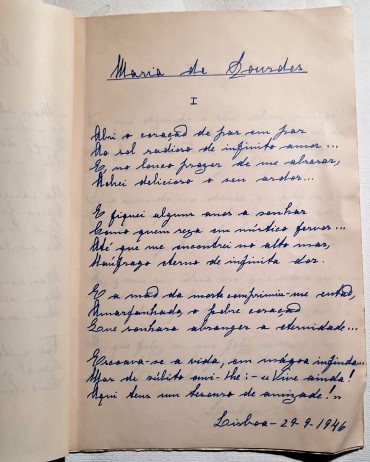 Maria de Lourdes
I
Abri o coração de par em par
Ao sol radioso de infinito amor...
E no louco prazer de me abrasar,
Achei delicioso o seu ardor...
E fiquei alguns anos a sonhar
Como quem reza em místico fervor...
Até que me encontrei no alto mar,
Naúfrago eterno de infinita dor.
E a mão da morte comprimiu-me então,
Amarfanhado, o pobre coração
Que sonhara abranger a eternidade...
Escoava-se a vida, em mágoa infinda...
Mas de súbito ouvi-lhe: - «Vive ainda!
Aqui tens um tesouro de amizade!»
Lisboa - 29-9-1946